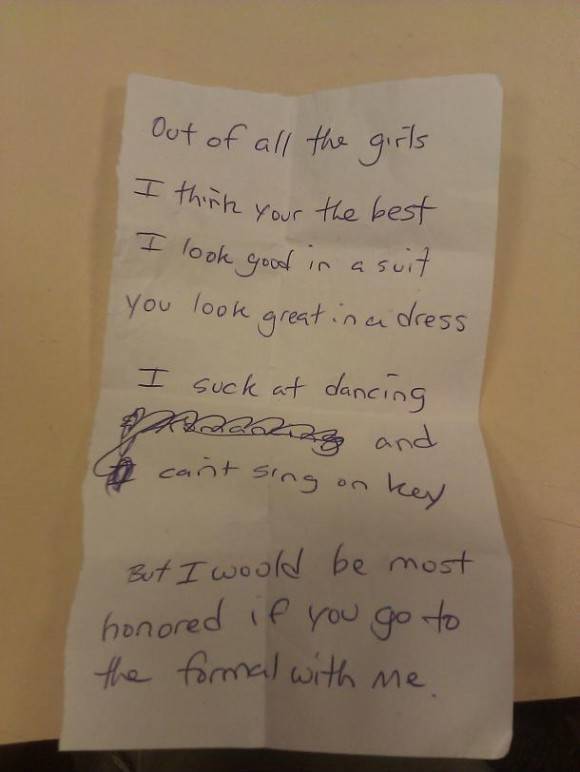 Out of all the girls
I think your the best
I look good in a suit
you look great in a dress
I suck at dancing
and
can't sing on key
But I woold be most
honored if you go to
the formal with me.